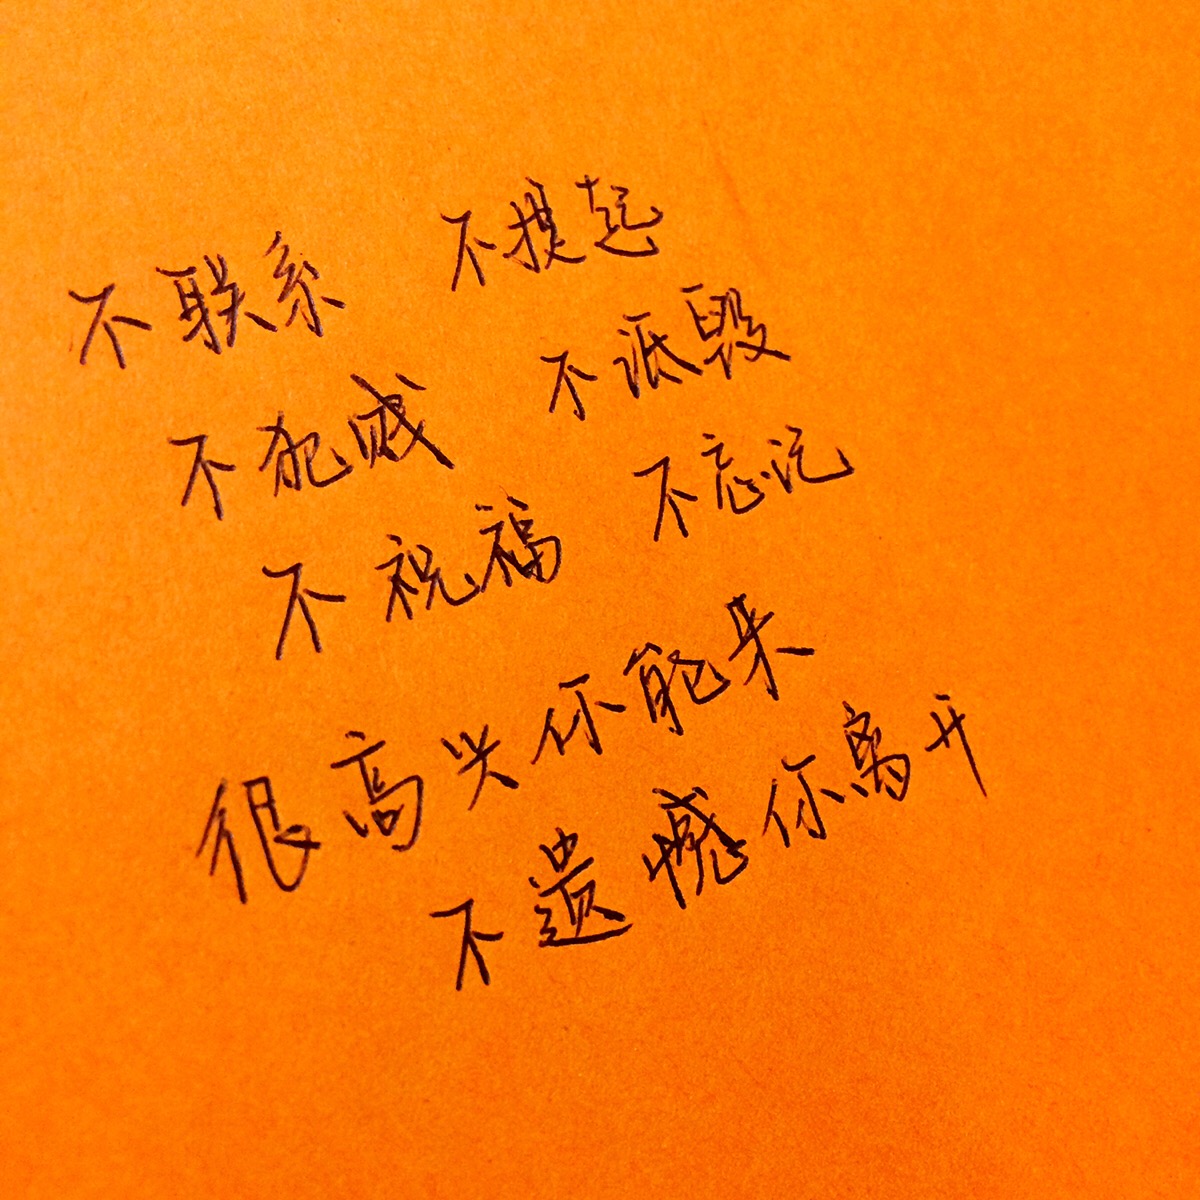 不联系 不提起
不犯贱 不诋毁
不祝福 不忘记
很高兴你能来
不遗憾你离开